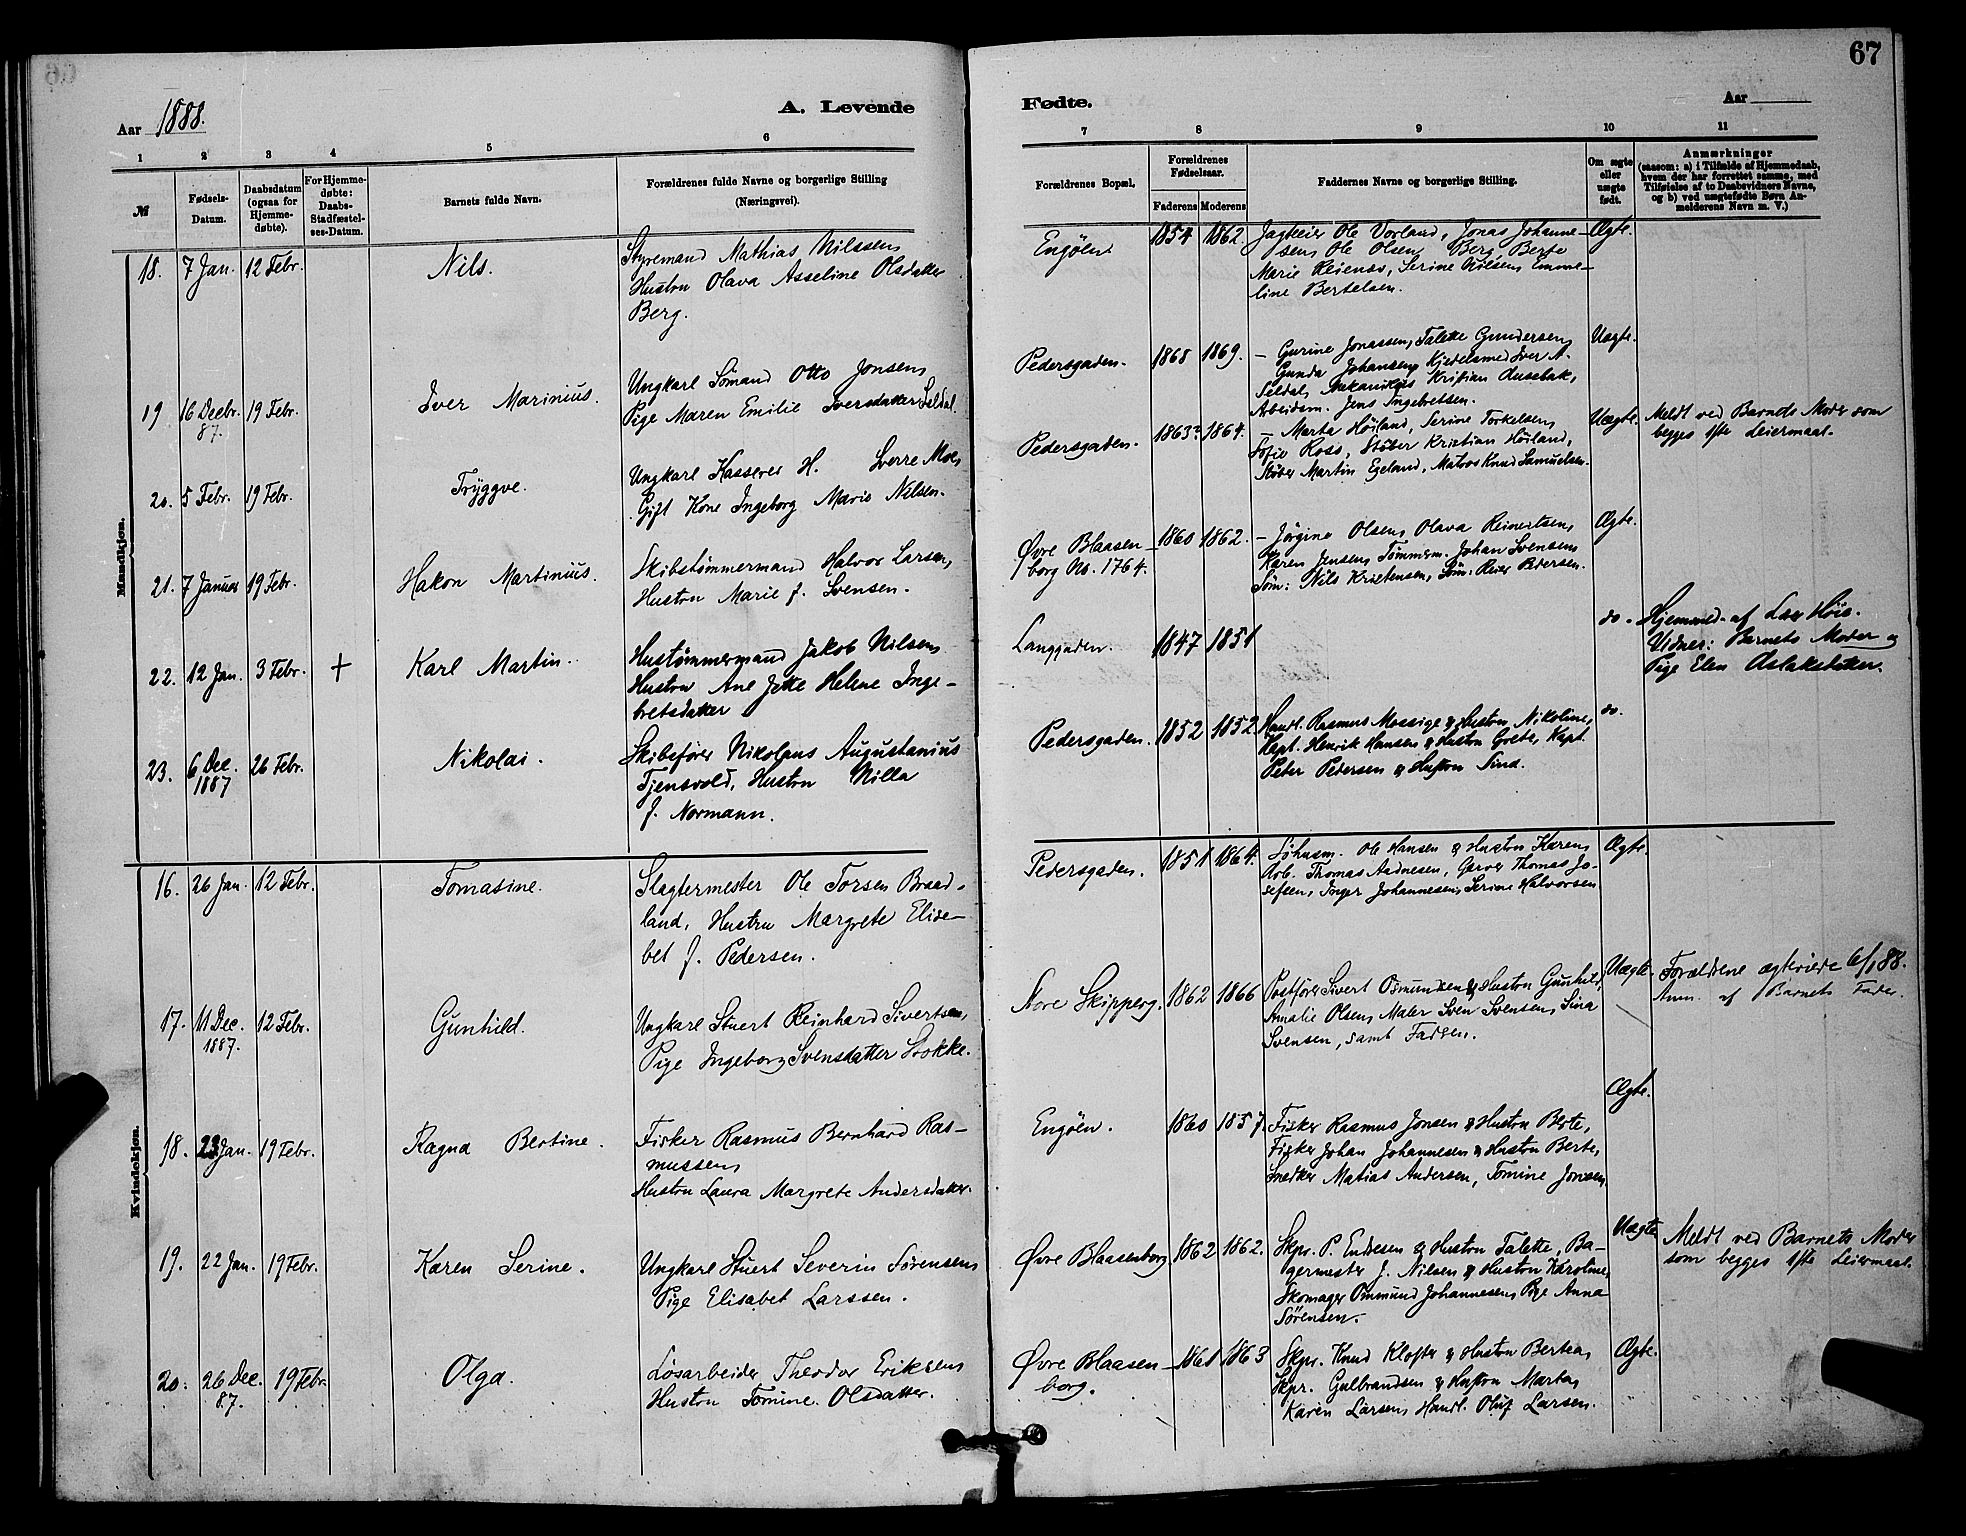 67
Aar 1888.
A. Levende
Fødte.
Aar
1 2 3 4 5 6
7 8 9 10 11
№
Fødsels-
Datum.
Daabsdatum
(ogsaa for
Hjemme-
døbte).
For Hjemme-
døbte:
Daabs-
Stadfæstel-
ses-Datum.
Barnets fulde Navn.
Forældrenes fulde Navne og borgerlige Stilling
(Næringsvei).
Forældrenes Bopæl.
Forældrenes
Fødselsaar.
Faderens Moderens
Faddernes Navne og borgerlige Stilling.
Om ægte
eller
uægte
født.
Anmærkninger
(saasom: a) i Tilfælde af Hjemmedaab,
hvem der har forrettet samme, med
Tilføielse af to Daabsvidners Navne,
og b) ved uægtefødte Børn An-
melderens Navn m. V.)
Mandkjøn.
18. 7 Jan. 12 Febr. Nils.
Styremand Mathias Nilssen,
Hustru Olava Asseline Olsdatter
Berg.
Engøen 1854 1862.
Jagteier Ole Vorland, Jonas Johanne-
sen, Ole Olsen Berg, Berte
Marie Reienso, Serine Nilsen, Emme-
line Bertelsen.
Ægte.
19 16 Decbr. 87. 19 Febr. Iver Marinius.
Ungkarl Sømand Otto Jonsen,
Pige Maren Emilie Iversdatter Seldal.
Pedersgaden. 1868 1869.
– Gurine Jonassen, Talette Gundersen,
Gunda Johansen, Kjedelsmed Iver A.
Seldal, Mekanikus Kristian Ausebak,
Arbeidsm. Jens Ingebretsen.
Uægte.
20. 5 Febr. 19 Febr. Tryggve.
Ungkarl Kasserer H. Sverre Moe,
Gift Kone Ingeborg Marie Nilsen.
Pedersgaden. 1863? 1864.
– Marta Høiland, Serine Torkelsen,
Sofie Ross, Støber Kristian Høiland,
Støber Martin Egeland, Matros Knud Samuelsen.
Uægte.
Meldt ved Barnets Moder som
begges 1ste Leiermaal.
21. 7 Januar 19 Febr. Hakon Martinius.
Skibstømmermand Halvor Larsen,
Hustru Marie f. Svensen.
Øvre Blaasen-
borg No. 1764. 1860 1862.
– Jørgine Olsen, Olava Reinertsen,
Karen Jensen, Tømmerm. Johan Svensen,
Søm: Nils Kristensen, Søm: Reier Pedersen.
Ægte.
22. 12 Jan. 3 Febr. + Karl Martin.
Hustømmermand Jakob Nilsen
Hustru Ane Jette Helene Inge-
bretsdatter
Langgaden. 1847 1851
do.
Hjemmed. af Læge Høie.
Vidner: Barnets Moder og
Pige Elen Aslaksdatter.
23. 6 Dec. 1887 26 Febr. Nikolai.
Skibsfører Nikolaus Augustanius
Tjensvold, Hustru Milla
f. Normann.
Pedersgaden. 1852 1852.
Handl. Rasmus Mossige & Hustru Nikoline,
Kapt. Henrik Hansen & Hustru Grete, Kapt.
Peter Pedersen & Hustru Sind.
do.
Kvindekjøn.
16. 26 Jan. 12 Febr. Tomasine.
Slagtermester Ole Torsen Braad-
land, Hustru Margrete Elisa-
bet f. Pedersen.
Pedersgaden. 1851 1864.
Søhusm. Ole Hansen & Hustru Karen,
Arb. Thomas Aadnesen, Garver Thomas Jo-
sefsen, Inger Johannesen, Serine Halvorsen
Ægte.
17. 11 Dec. 1887. 12 Febr. Gunhild.
Ungkarl Stuert Reinhard Sivertsen,
Pige Ingeborg Svensdatter Stokke.
Store Skipperg. 1862 1866
Postfører Sivert Osmundsen & Hustru Gunhild,
Amalie Olsen, Maler Sven Svensen, Sina
Svensen, samt Faderen.
Uægte.
Forældrene ægteviede 6/1 88.
Anm. af Barnets Fader.
18. 23 Jan. 19 Febr. Ragna Bertine.
Fisker Rasmus Bernhard Ras-
mussen,
Hustru Laura Margrete Andersdatter.
Engøen. 1860 1857.
Fisker Rasmus Jonsen & Hustru Berte,
Fisker Johan Johannesen & Hustru Berte,
Snedker Matias Andersen, Tomine Jonsen.
Ægte.
19. 22 Jan. 19 Febr. Karen Serine.
Ungkarl Stuert Severin Sørensen,
Pige Elisabet Larssen.
Øvre Blaasenborg 1862 1862.
Skpr. P. Endresen & Hustru Talette, Ba-
germester J. Nilsen & Hustru Karoline,
Skomager Ommund Johannesen, Pige Anna
Sørensen.
Uægte
Meldt ved Barnets Moder
som begges 1ste Leiermaal.
20. 26 Dec. 87. 19 Febr. Olga.
Løsarbeider Theodor Eriksen,
Hustru Tomine Olsdatter.
Øvre Blaasen-
borg. 1861 1863
Skpr. Knud Kloster & Hustru Bertea,
Skpr. Gulbrandsen & Hustru Marta,
Karen Larsen, Handl. Oluf Larsen.
Ægte.